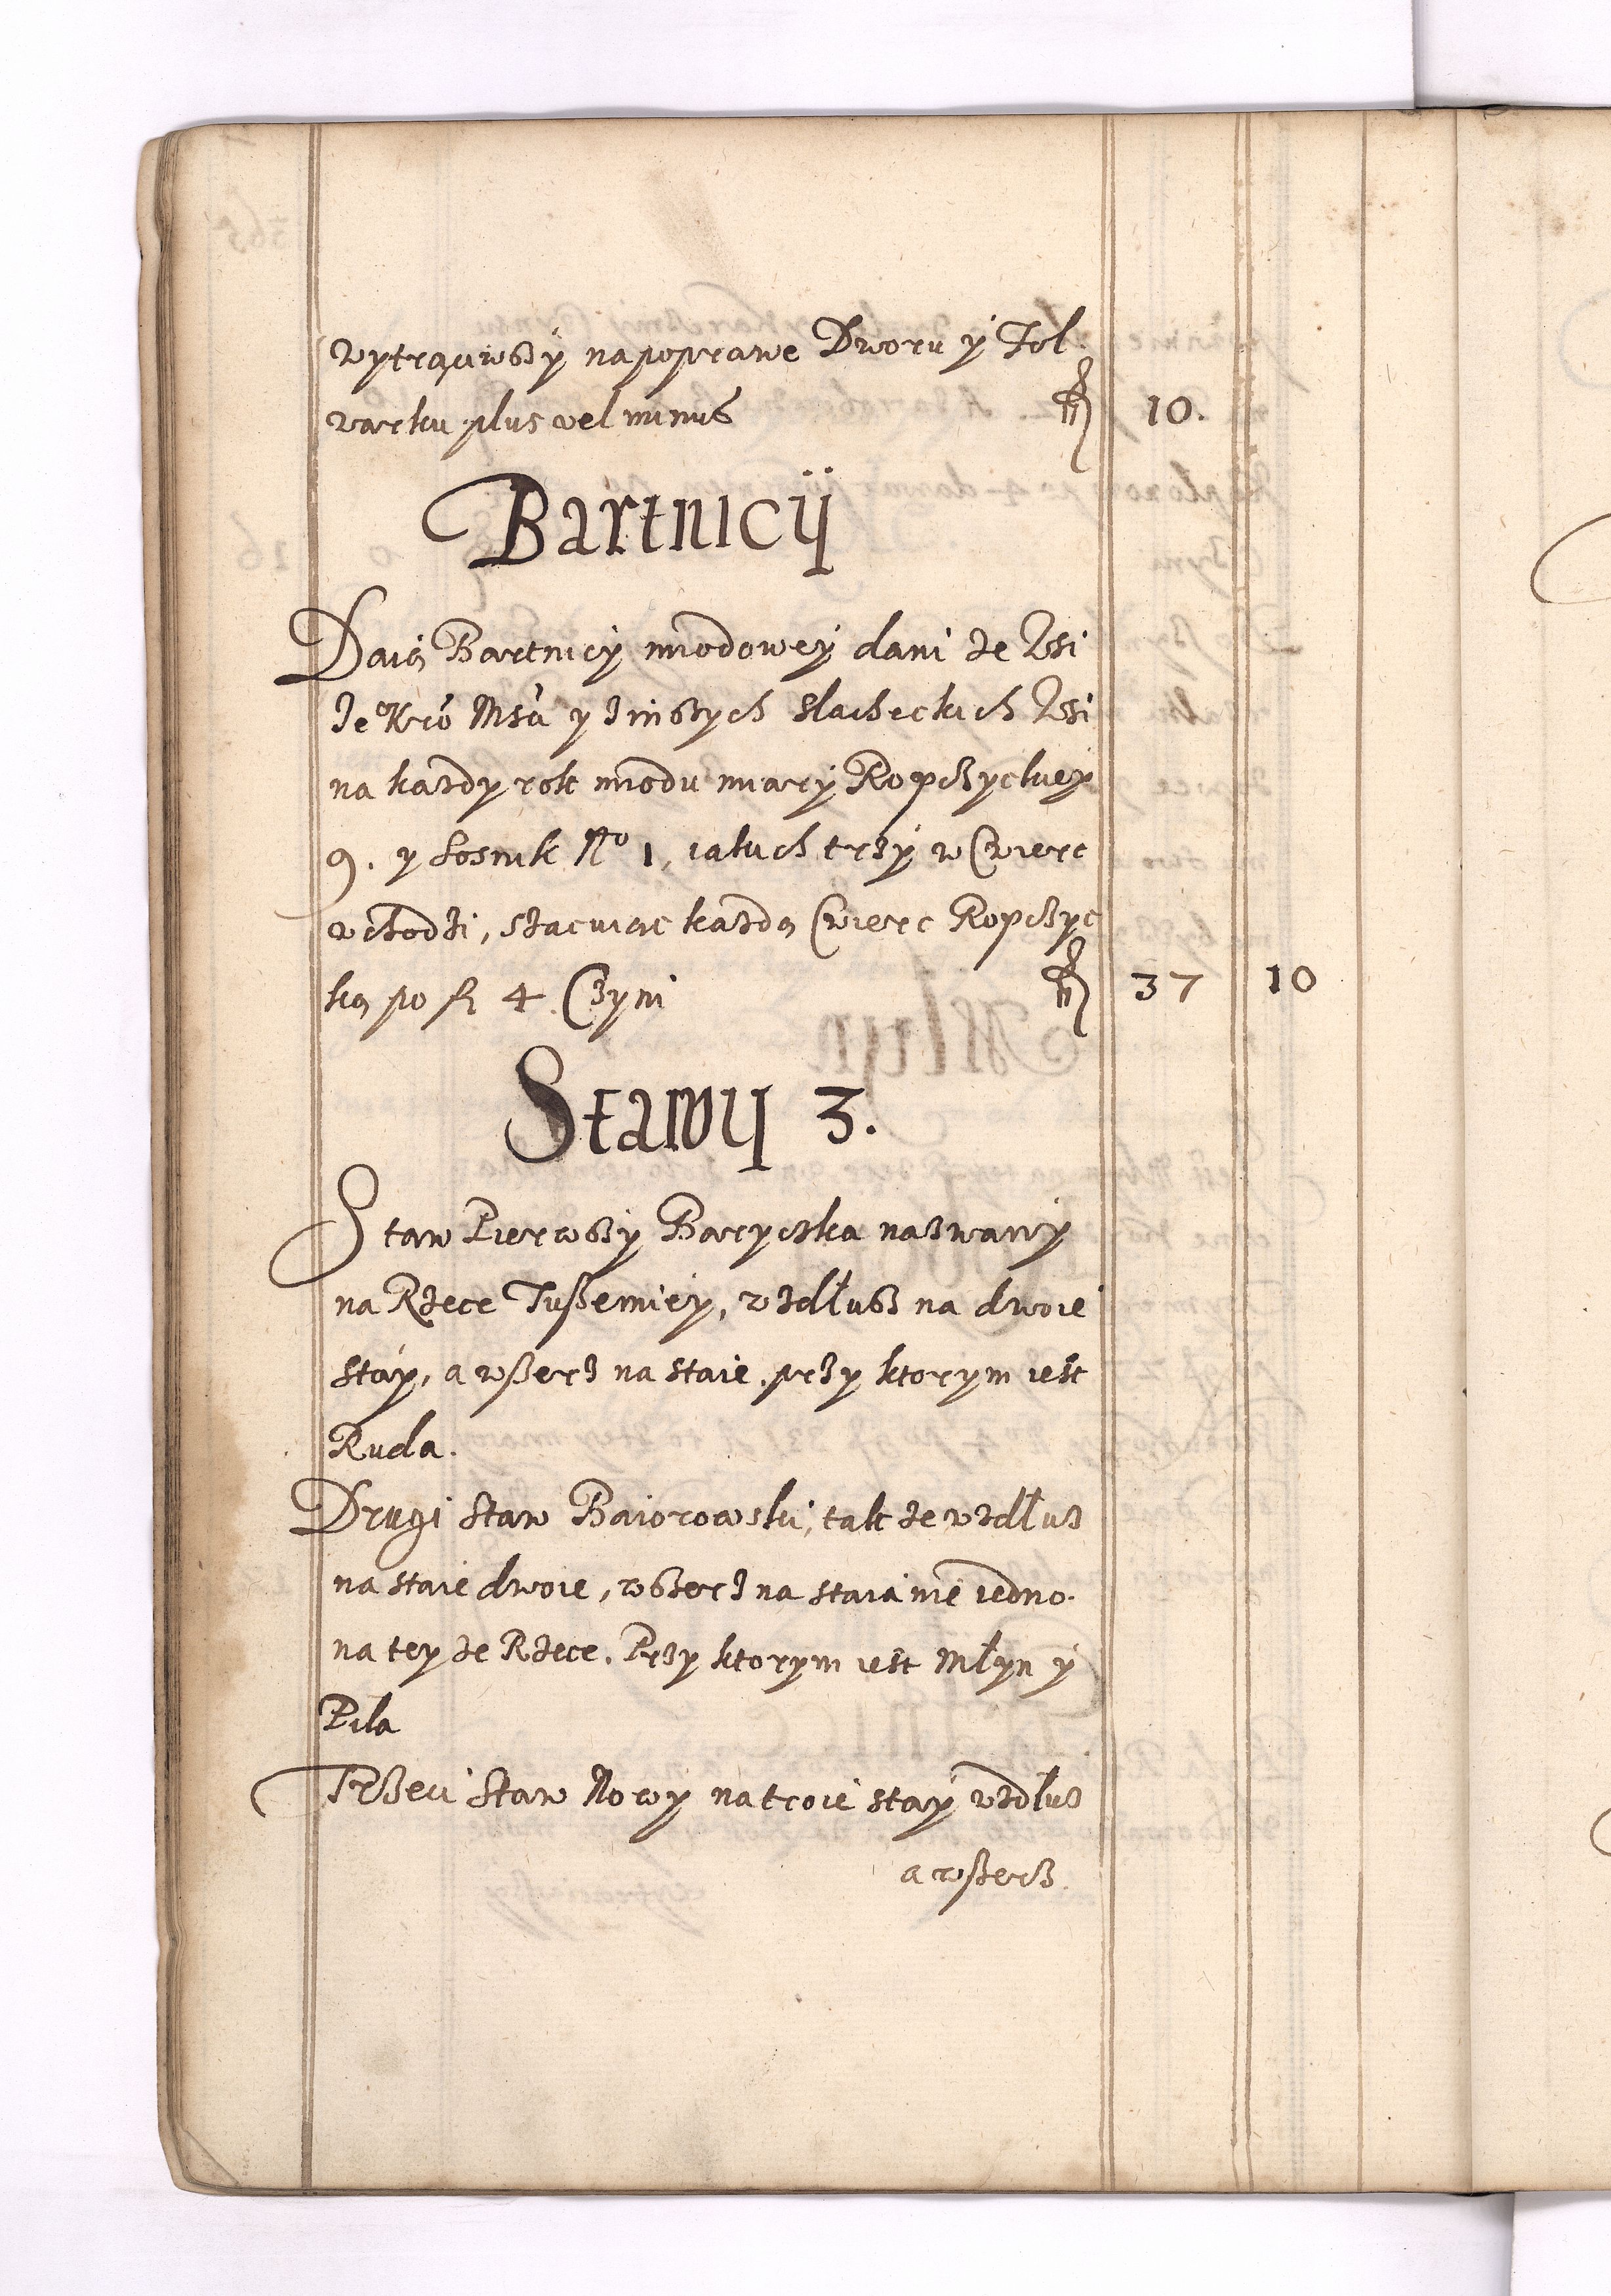 wytrąciwszy na poprawe Dworu y Fol-
warku plus vel minus fl 10.
Bartnicy
Daią Bartnicy miodowey dani ze Wsi
Je° Kró Mśći y z inszych Slacheckich Wsi
na kazdy rok miodu miary Ropczyckiey
9. y Łosnik No 1, iakich trzy w Cwierc
wchodzi, szacuiąc kazdą Cwierc Ropczyc
ką po fl 4. Czyni fl 37 10
Stawy 3.
Staw Pierwszy Baryczka nazwany
na Rzece Tuszemiey, wzdłusz na dwoie
stay, a wszerz na staie, przy ktorym iest
Ruda.
Drugi Staw Baiorowski, takze wzdłuz
na staie dwoie, wszerz na staianie iedno.
na teyze Rzece. Przy ktorym iest Młyn y
Piła
Trzeci Staw Nowy na troie stay wzdluz
a wszerz